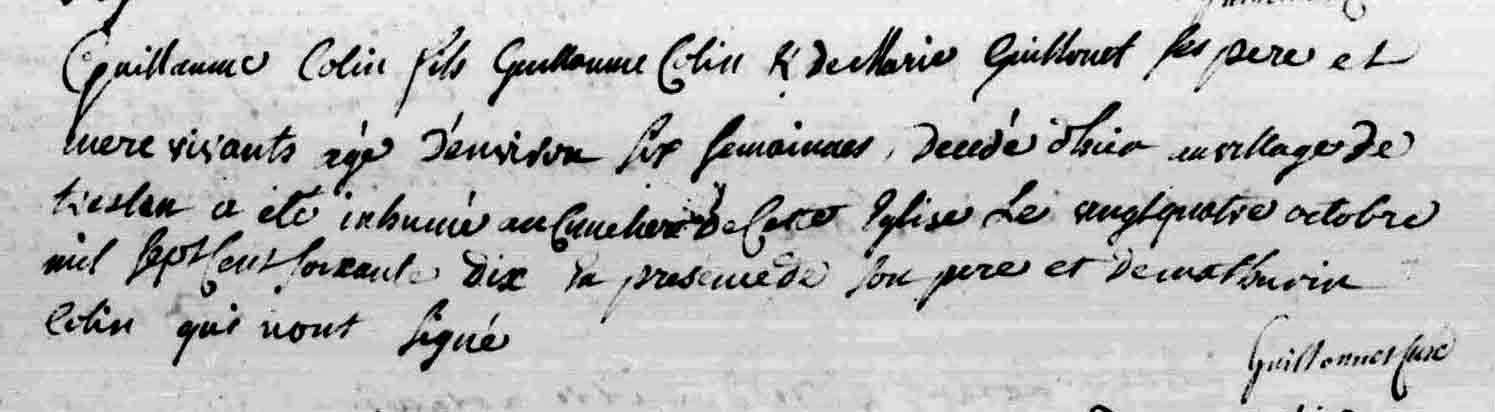 Guillaume Colin fils Guillaume Colin & de Marie Guillouet ses pere et
mere vivants agé d'environ six semainnes, decedé d'hier au village de
a été inhumé au Cimetiere de Cette Eglise Le vingt quatre octobre
mil sept Cent soixante dix en presence de son pere et de mathurin
Colin qui n'ont signé